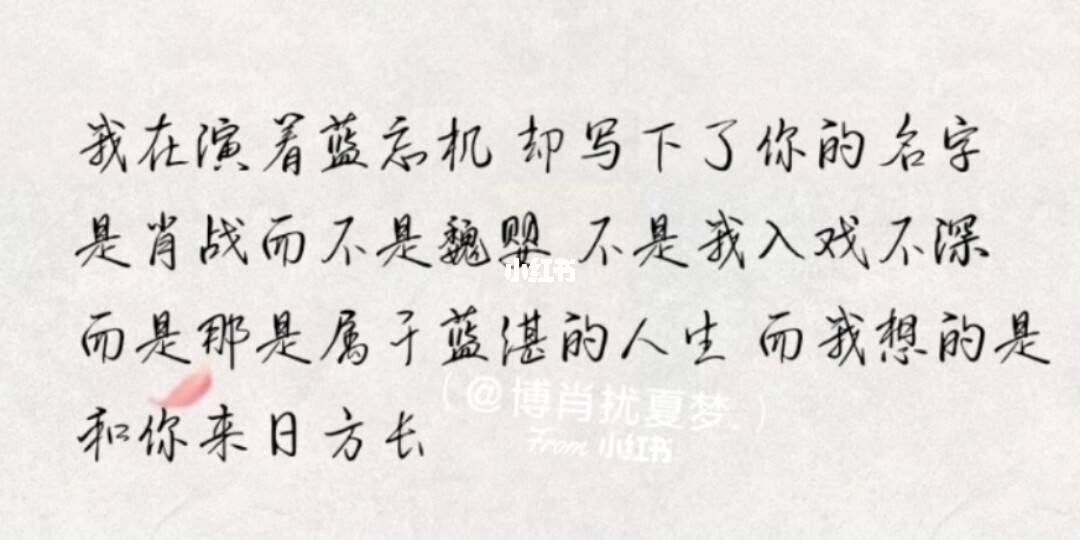 我在演着蓝忘机 却写下了你的名字
是肖战而不是魏婴 不是我入戏不深
小红书
而是那是属于蓝湛的人生 而我想的是
（@博肖扰夏梦.）
和你来日方长
From 小红书